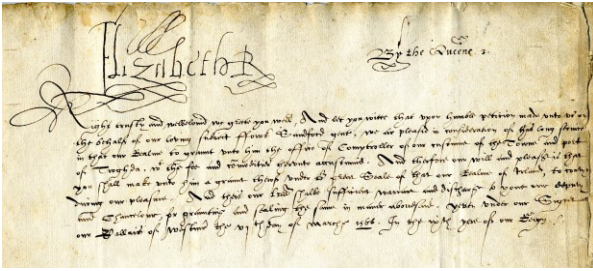 Elizabeth R
By the Queene
Right trusty and welbeloved we grete you well, And let you witte that upon humble petition made unto us on
the behalfe of our loving subiect Sandford gent, we are pleased in consideration of his long service
in that our Realme to graunt unto him the office of Comptroller of our custome of the Towne and port
of the fee and And therfore our will and pleasure is that
you shall make unto him a graunt therof under the great Seale of that our Realme of Ireland, to
during our pleasure, And these our shalbe sufficient warrant and discharge to youre our deputy
and Chauncelour, for graunting and sealing the same in maner abovesaid. under our Signet
our of the day of Marche In the yere of our Reign